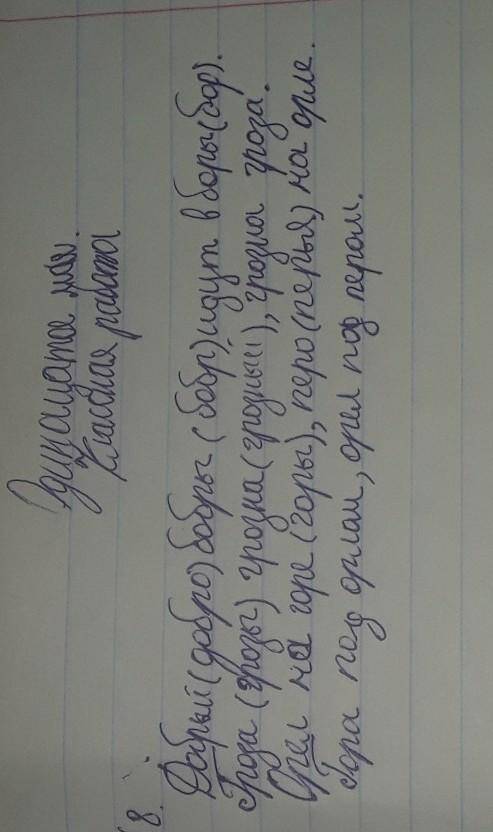 Одинацатое мая.
Классная работа
8.
Добрый (добро) бобры (бобр) идут в боры (бор).
Гроза (грозы) грозна (грозный), грозна гроза.
Орел на горе (горы), перо (перья) на орле.
Гора под орлом, орел под пером.